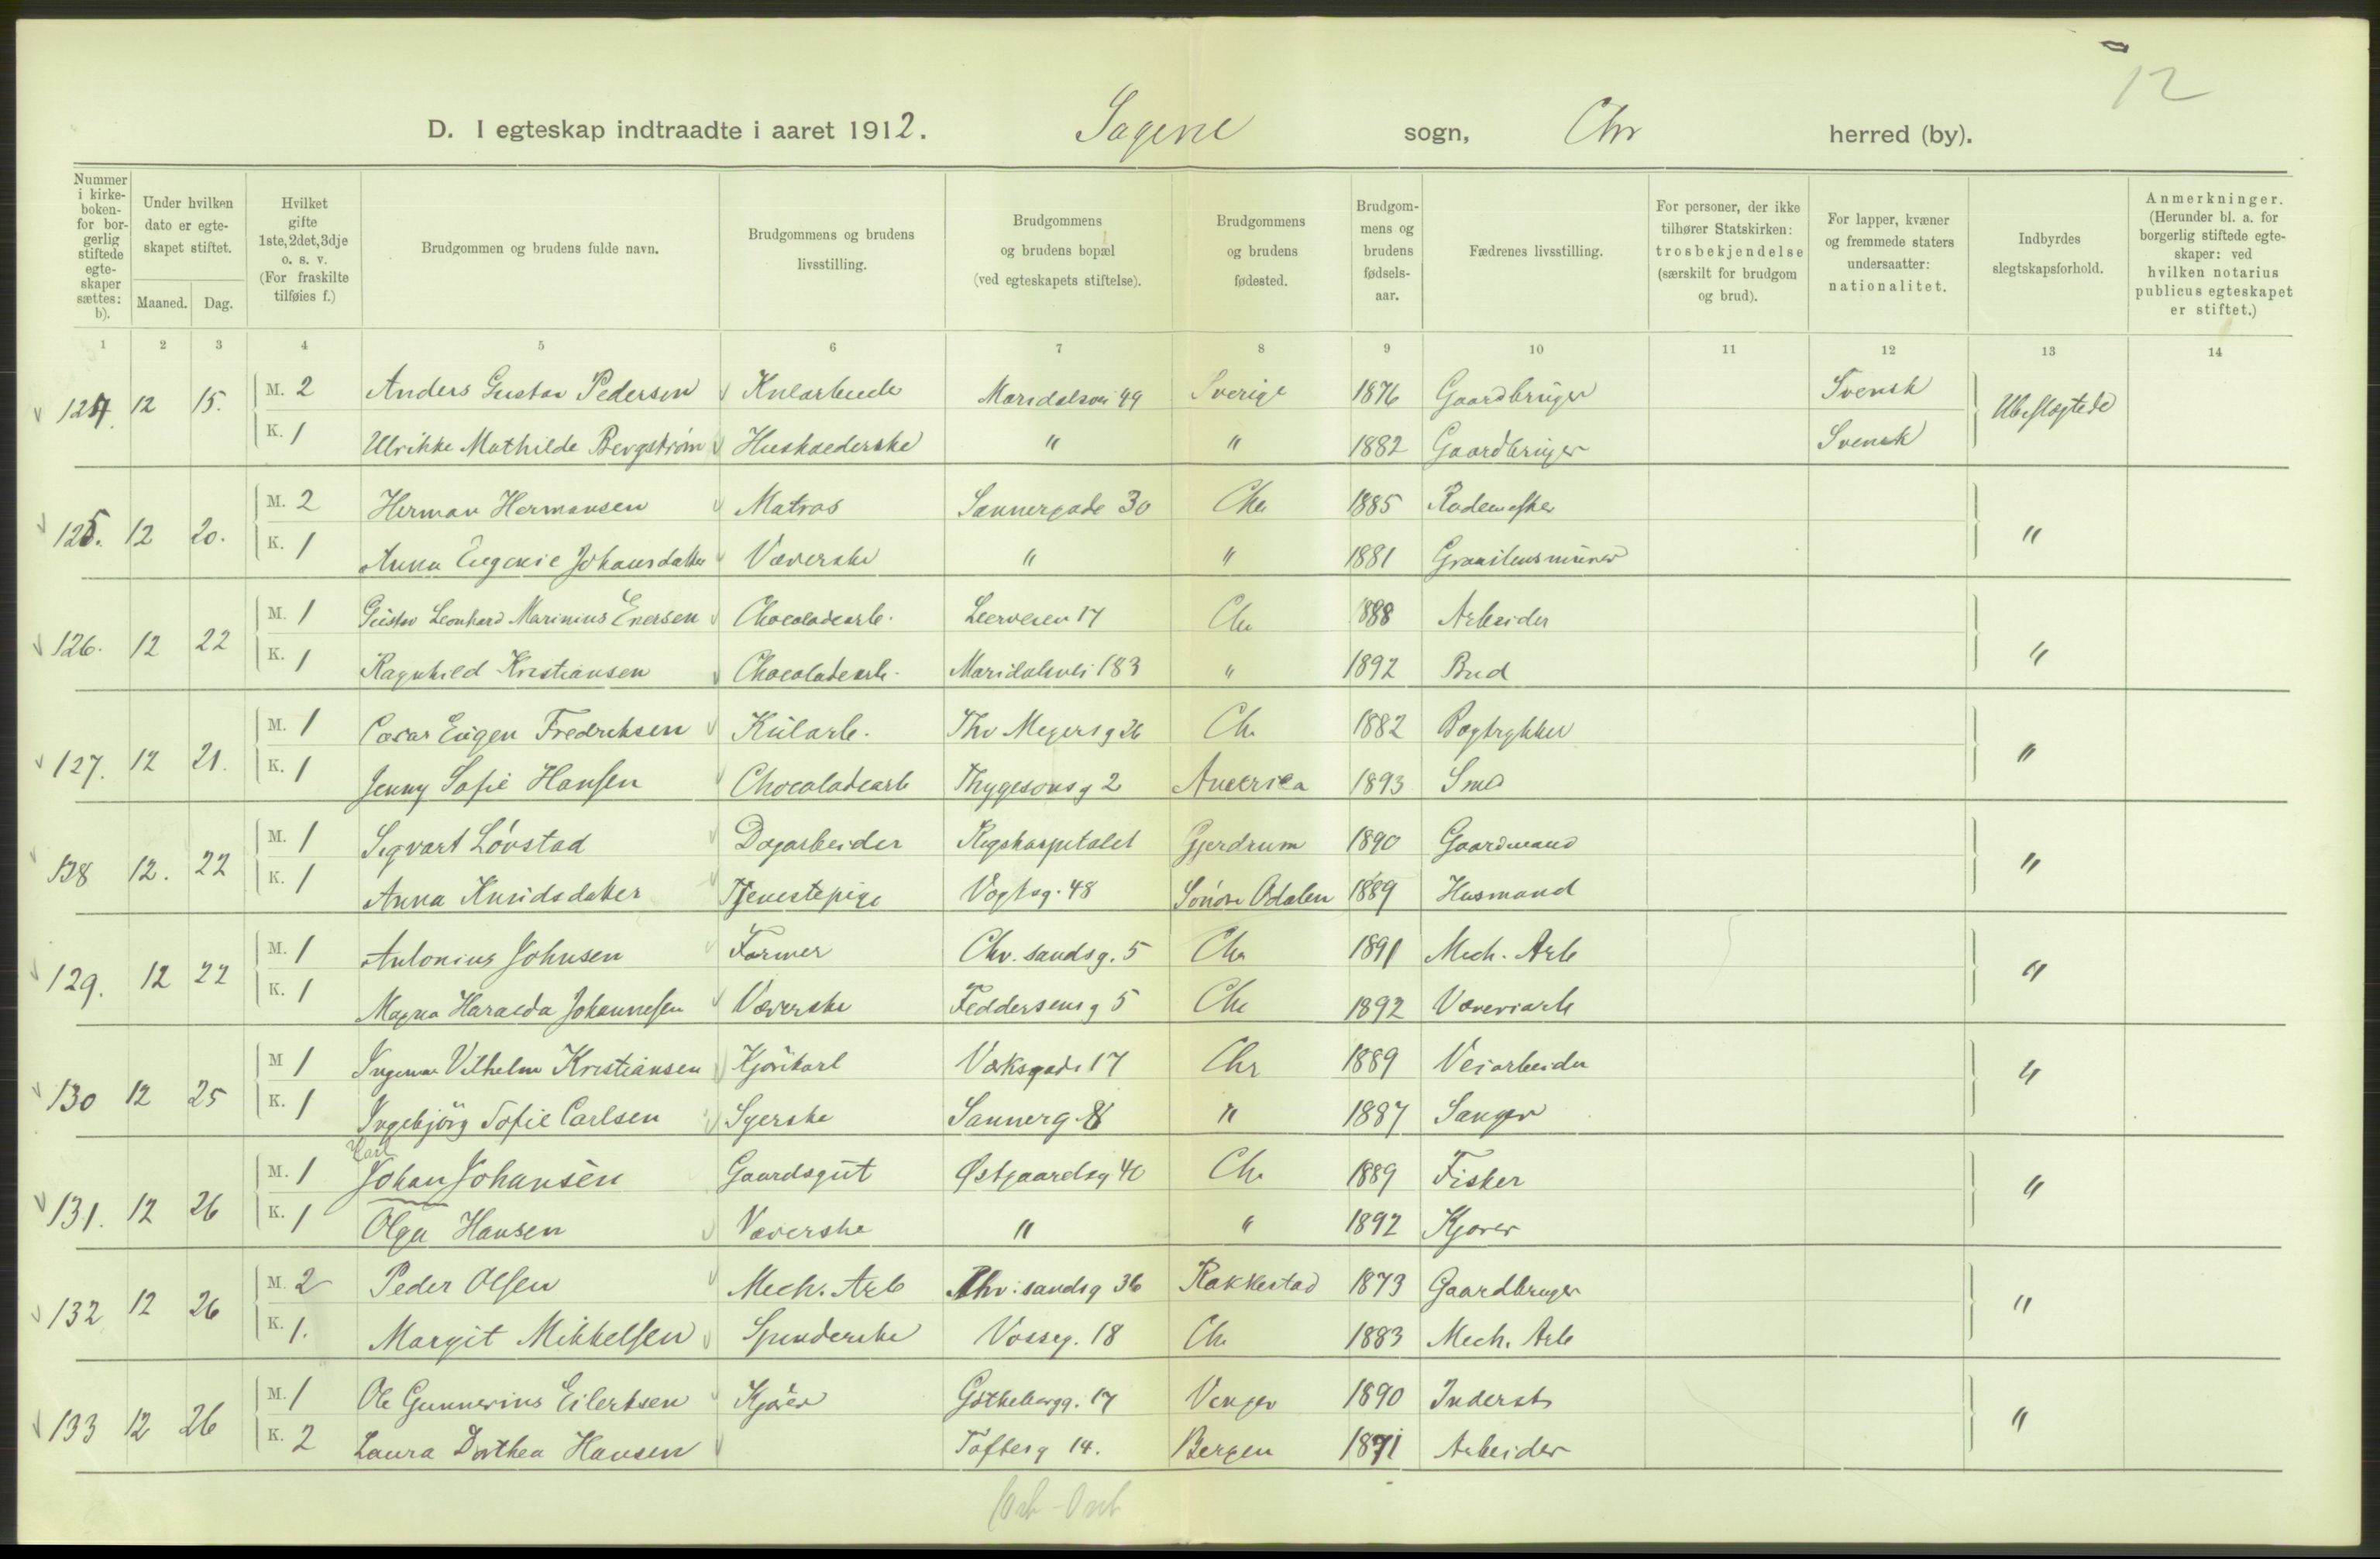 12
D. I egteskap indtraadte i aaret 1912. Sagene sogn, Chr herred (by).
Nummer i kirkeboken- for borgerlig stiftede egteskaper sættes: b).
Under hvilken dato er egteskapet stiftet.
Maaned. Dag.
Hvilket gifte 1ste, 2det, 3dje o. s. v. (For fraskilte tilføies f.)
Brudgommen og brudens fulde navn.
Brudgommens og brudens livsstilling.
Brudgommens og brudens bopæl (ved egteskapets stiftelse).
Brudgommens og brudens fødested.
Brudgommens og brudens fødselsaar.
Fædrenes livsstilling.
For personer, der ikke tilhører Statskirken: trosbekjendelse (særskilt for brudgom og brud).
For lapper, kvæner og fremmede staters undersaatter: nationalitet.
Indbyrdes slegtskapsforhold.
Anmerkninger. (Herunder bl. a. for borgerlig stiftede egteskaper: ved hvilken notarius publicus egteskapet er stiftet.)
1 2 3 4 5 6 7 8 9 10 11 12 13 14
124. 12 15. M. 2 Anders Gustav Pedersen Kularbeide Maridalsvei 49 Sverige 1876 Gaardbruger Svensk Ubeslægtede
K. 1 Ulrikke Mathilde Bergstrøm Husholderske " " 1882 Gaardbruger Svensk
125. 12 20. M. 2 Herman Hermansen Matros Sannergade 30 Chr 1885 Rodemester "
K. 1 Anna Eugenie Johansdatter Væverske " " 1881 Graastensmurer
126. 12 22 M. 1 Gustav Leonhard Marinius Enersen Chocoladearb. Leerveien 17 Chr 1888 Arbeider "
K. 1 Ragnhild Kristiansen Chocoladearb. Maridalsvei 183 " 1892 Bud
127. 12 21. M. 1 Oscar Eugen Fredriksen Kularb. Thv Meyers g 26 Chr 1882 Bogtrykker "
K. 1 Jenny Sofie Hansen Chocoladearb Thygesons g 2 America 1893 Smed
128 12. 22 M. 1 Sigvart Løvstad Dagarbeider Rigshospitalet Gjerdrum 1890 Gaardmand "
K. 1 Anna Knudsdatter Tjenestepige Vogtsg. 48 Søndre Odalen 1889 Husmand
129. 12 22 M. 1 Antonius Johnsen Former Chr. sandsg. 5 Chr 1891 Mech. Arb "
K. 1 Magna Haralda Johannesen Væverske Feddersens g 5 Chr 1892 Væveriarb
130 12 25 M 1 Ingvar Vilhelm Kristiansen Kjørekarl Værksgade 17 Chr 1889 Veiarbeider "
K. 1 Ingebjörg Sofie Carlsen Syerske Sannerg. " 1887 Sanger
Karl
131. 12 26 M. 1 Johan Johansen Gaardsgut Østgaardsg 40 Chr 1889 Fisker "
K. 1 Olga Hansen Væverske " " 1892 Kjører
132 12 26 M. 2 Peder Olsen Mech. Arb Chr. sandsg 36 Rakkestad 1873 Gaardbruger "
K. 1. Margit Mikkelsen Spinderske Vosseg. 18 Chr 1883 Mech. Arb
133 12 26 M. 1 Ole Gunnerius Eilertsen Kjører Götheborgg. 17 1890 Inderst "
K. 2 Laura Dorthea Hansen Toftesg 14. Bergen 1871 Arbeider